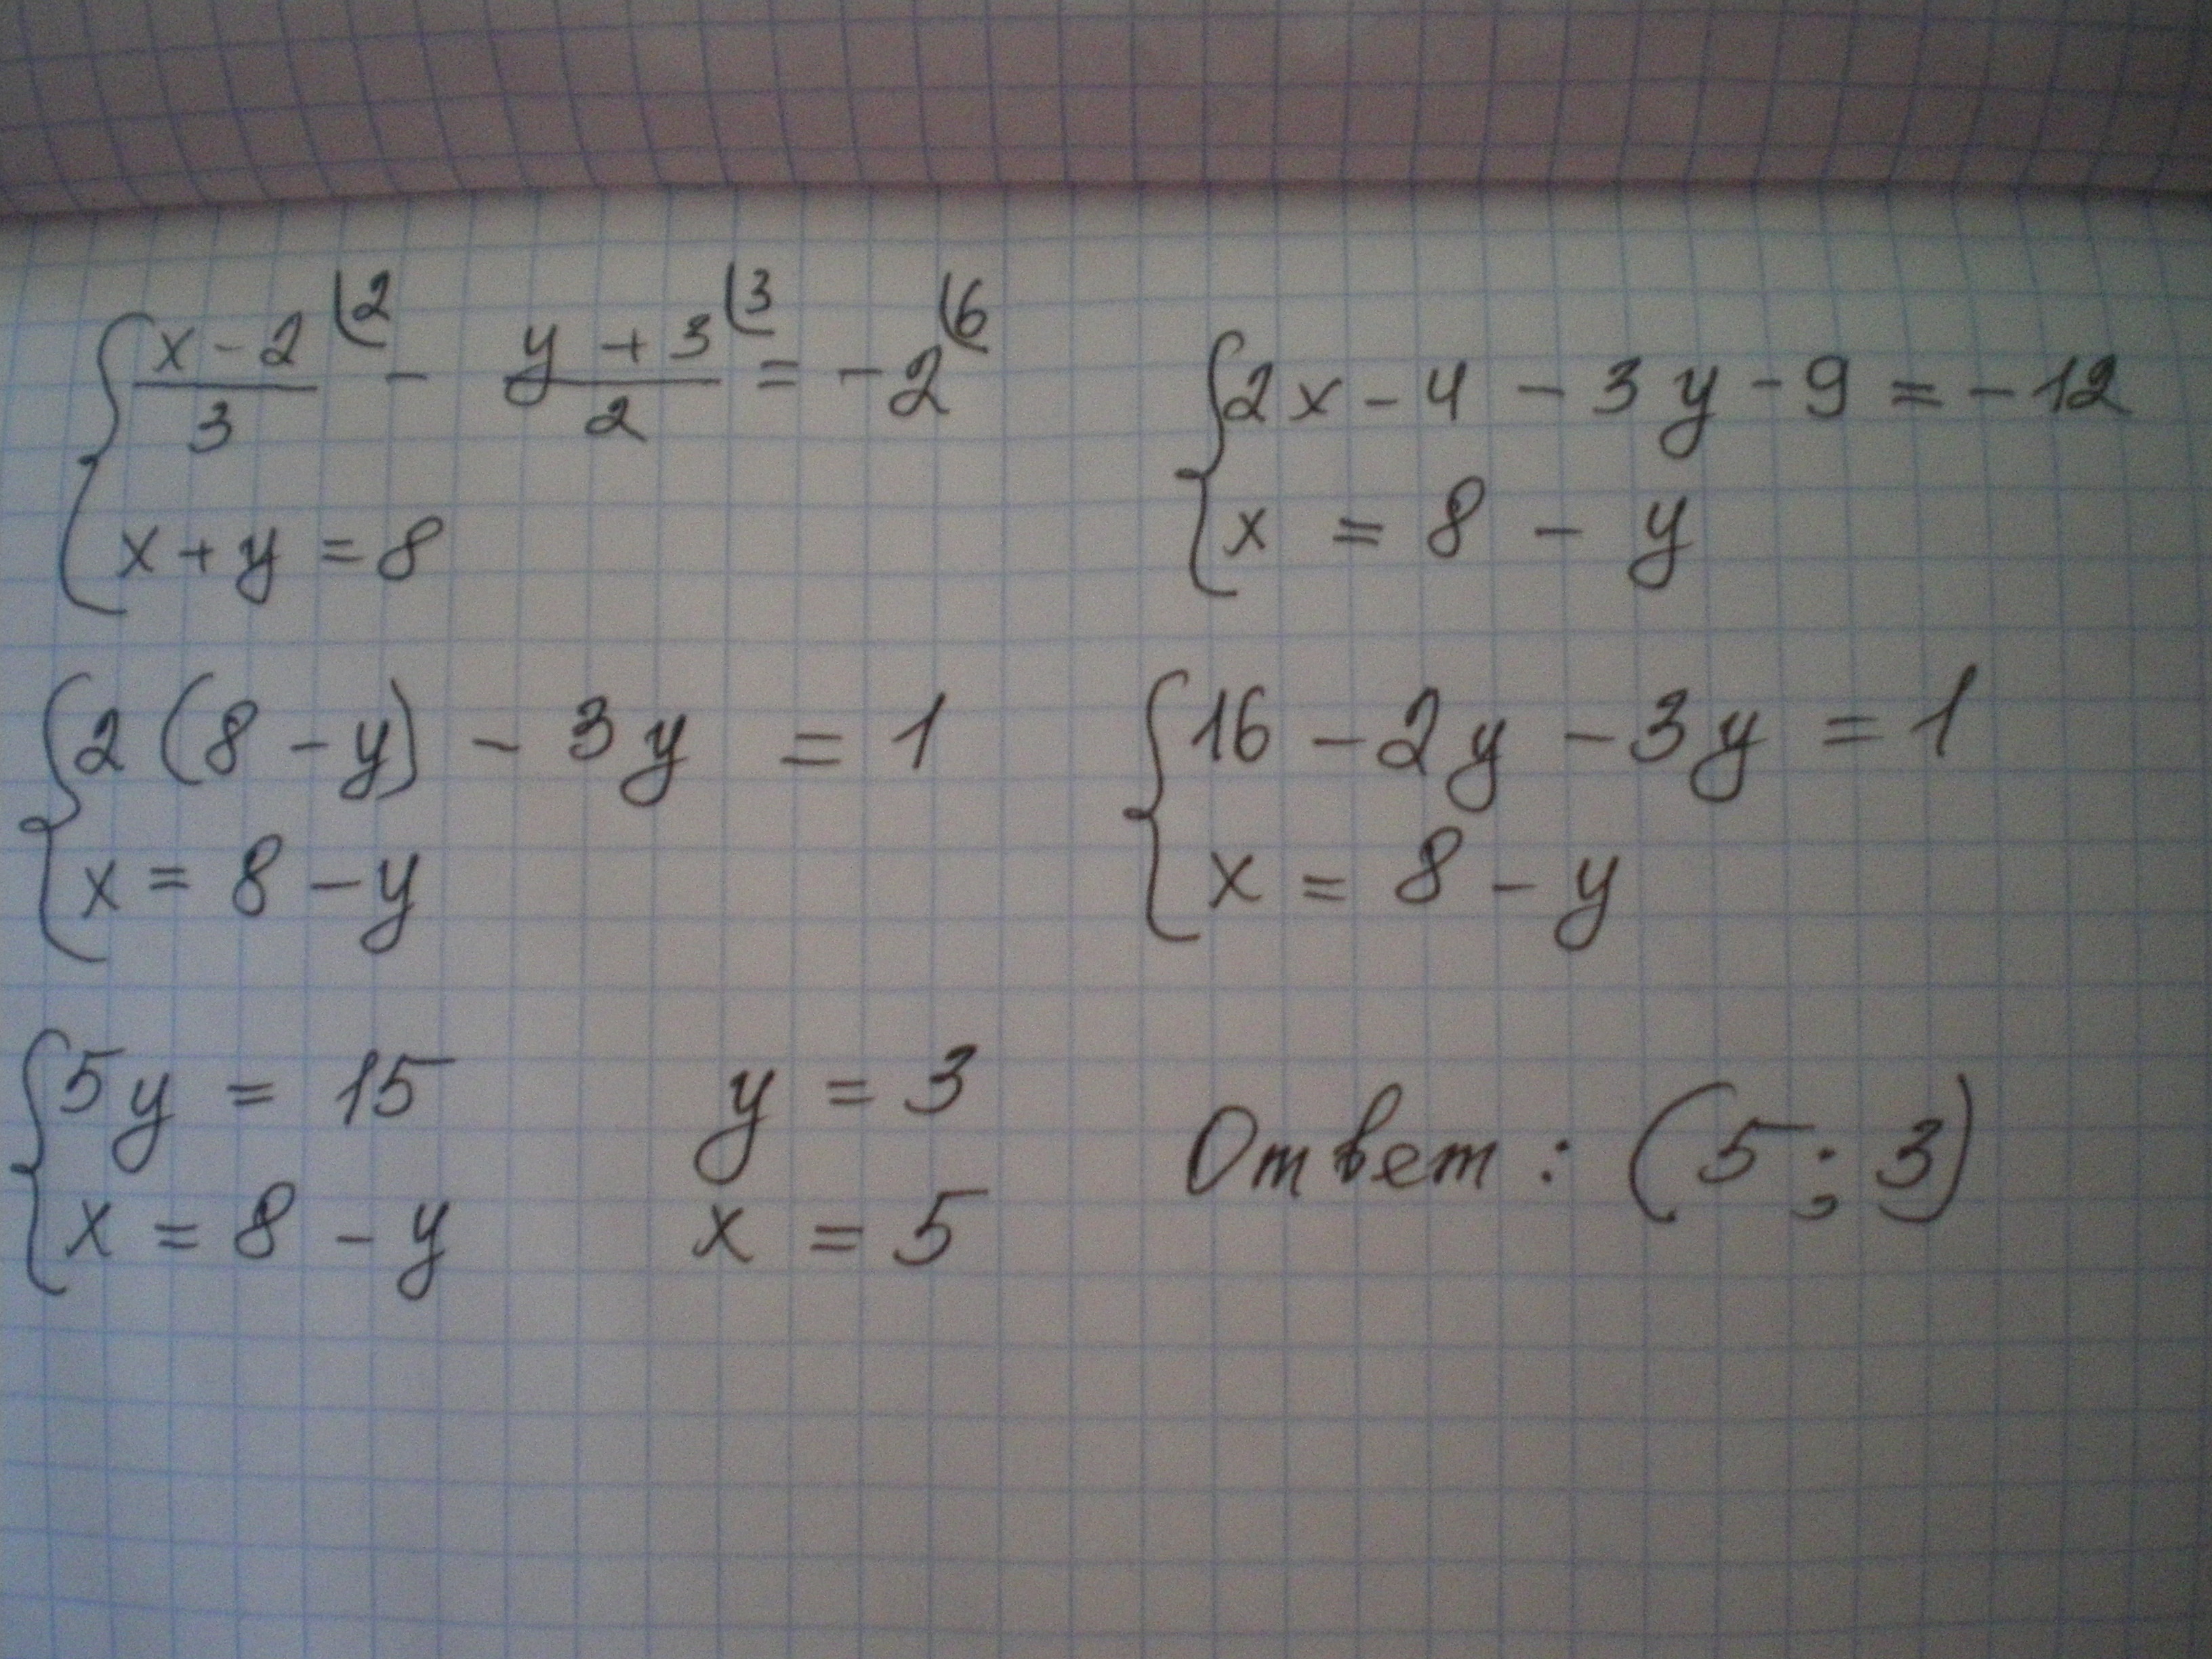 { (x-2)/3 (2 - (y+3)/2 (3 = -2 (6
x+y=8
{ 2x-4-3y-9=-12
x=8-y
{ 2(8-y)-3y=1
x=8-y
{ 16-2y-3y=1
x=8-y
{ 5y=15
x=8-y
y=3
x=5
Ответ: (5;3)